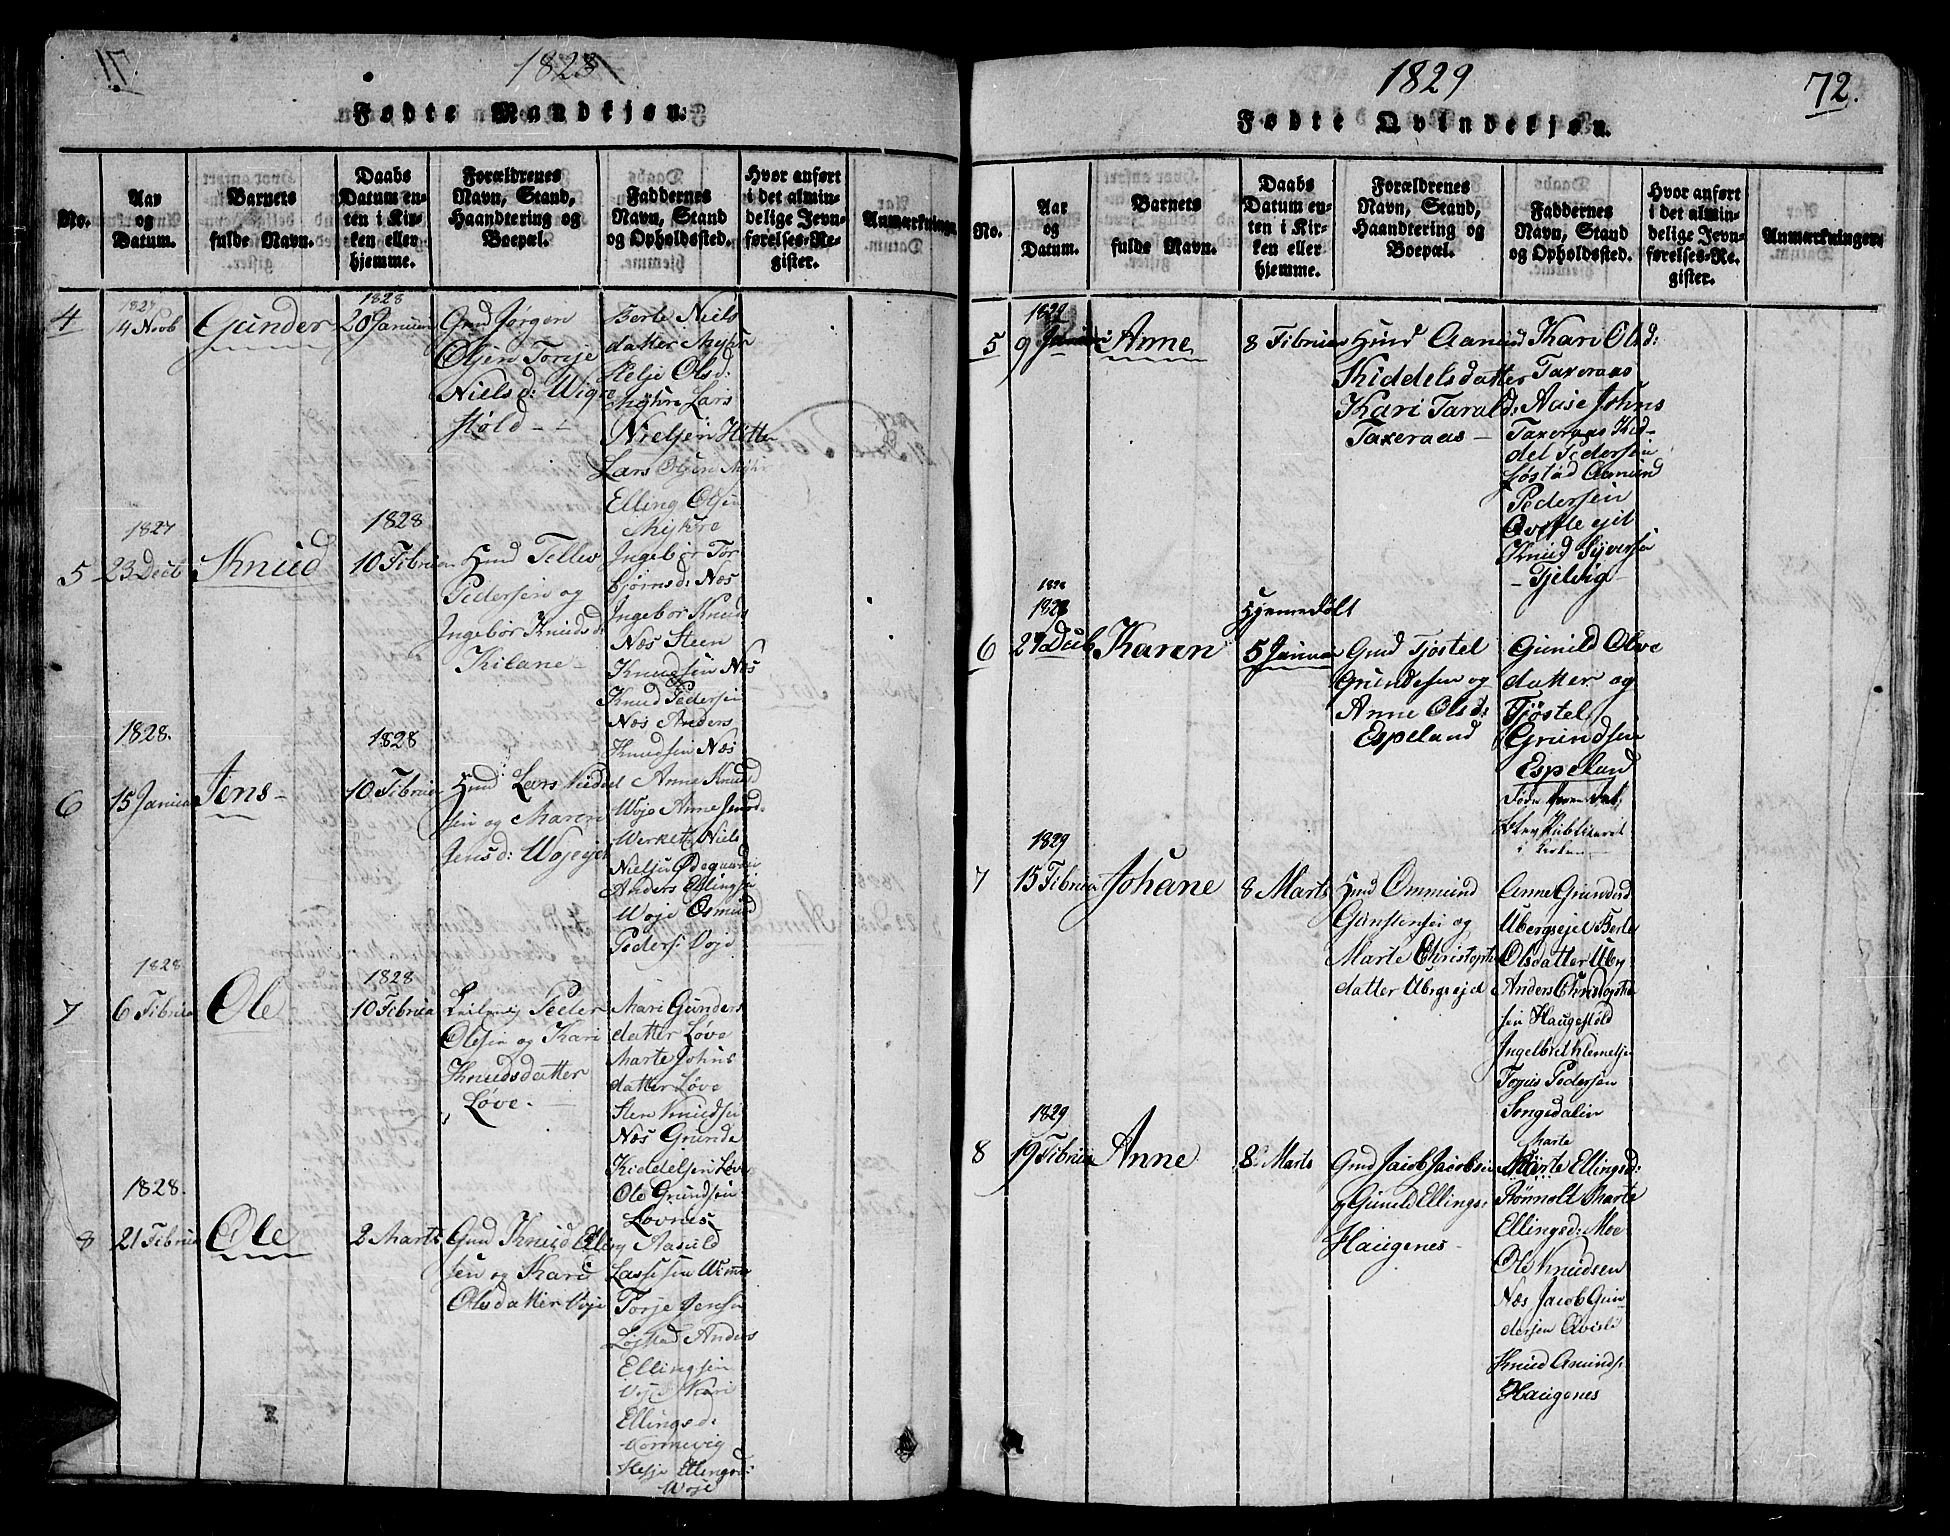 1828
Fødte Mandkjøn.
No.
Aar og Datum.
Barnets fulde Navn.
Daabs Datum enten i Kirken eller hjemme.
Forældrenes Navn, Stand, Haandtering og Boepæl.
Faddernes Navn, Stand og Opholdssted.
Hvor anført i det almindelige Jevnførelses-Register.
Anmærkninger.
4
1827
4 Novb
Gunder
1828
20 Januar
Gmd Jørgen
Olsen Torje
Nielsd: Wigre
støld
Berte Niels
datter Myhre
Helje Olsd:
Myhre Lars
Nielsen Hitten
Lars Olsen Myhr
Elling Olsen
Myhre
5
1827
23 Decb
Knud
1828
10 Februar
Hmd Tellev
Pedersen og
Ingebor Knudsd:
Kilane
Ingebor Tor
biørnsd: Næs
Ingebor Knuds
Næs Steen
Knudsen Næs
Knud Pedersen
Næs Anders
Knudsen Næs
6
1828.
15 Januar
Jens
1828
10 Februar
Hmd Lars
sen og Maren
Jensd: Wojeejet
Anne Knud
Woje Anne
Werket Niels
Nielsen Ødegaarden
Anders Ellingse
Woje Osmund
Peders: Voje
7
1828
6 Februar
Ole
1828
10 Februa
Peder
Olesen og Kari
Knudsdatter
Løve
Mari Gunders
datter Løve
Marte Johns
datter Løve
Sten Knudsen
Næs Grunde
Kiddelsen Løve
Ole Grundsen
Løvnes
8
1828.
21 Februa
Ole
2 Marts
Gmd Knud
sen og Kari
Olsdatter Voje
Aasuld
Lassesen
Torje Jensen
Løgstad Anders
Ellingsen
Voje Kari
Ellingsd:
Kornevig
Helje Ellingsd:
Woje
1829
72.
Fødte Qvindekjøn.
No.
Aar og Datum.
Barnets fulde Navn.
Daabs Datum enten i Kirken eller hjemme.
Forældrenes Navn, Stand, Haandtering og Boepæl.
Faddernes Navn, Stand og Opholdssted.
Hvor anført i det almindelige Jevnførelses-Register.
Anmærkninger.
5
1829
9 Januar
Anne
8 Februar
Hmd Aamund
Kiddelsdatter
Kari Tarald:
Taxeraas
Kari Olsd:
Taxeraas
Aase Johns
Taxeraas Kid-
del Pedersen
Løstad Aamund
Pedersen
Knud Syversen
Tjelvig
6
1828
27 Decb
Karen
Hjemmedøbt
5 Januar
Gmd Tjøstel
Grundesen og
Anne Olsd:
Espeland
Gunild Olve
datter og
Tjøstel
Grundsen
Espeland
blev Publiseret
i Kirken
7
1829
15 Februar
Johane
8 Marts
Hmd Ommund
Gunstensen og
Marte Christophe
datter Ubergsejet
Anne Grundesd
Ubergsejet Berte
Olsdatter Uberg
Anders Christophe
sen Haugestøld
Ingelbret Klemetse
Togius Pedersen
Songedalen
8
1829
19 Februar
Anne
8 Marts
Gmd Jacob Jacobsen
og Gunild Ellings:
Haugenes
Marte
Marte Ellingsd:
Rønnolt Marte
Ellingsd: Moe
Ole Knudsen
Næs Jacob Gun
dersen Qvisli
Knud Amunds:
Haugenes